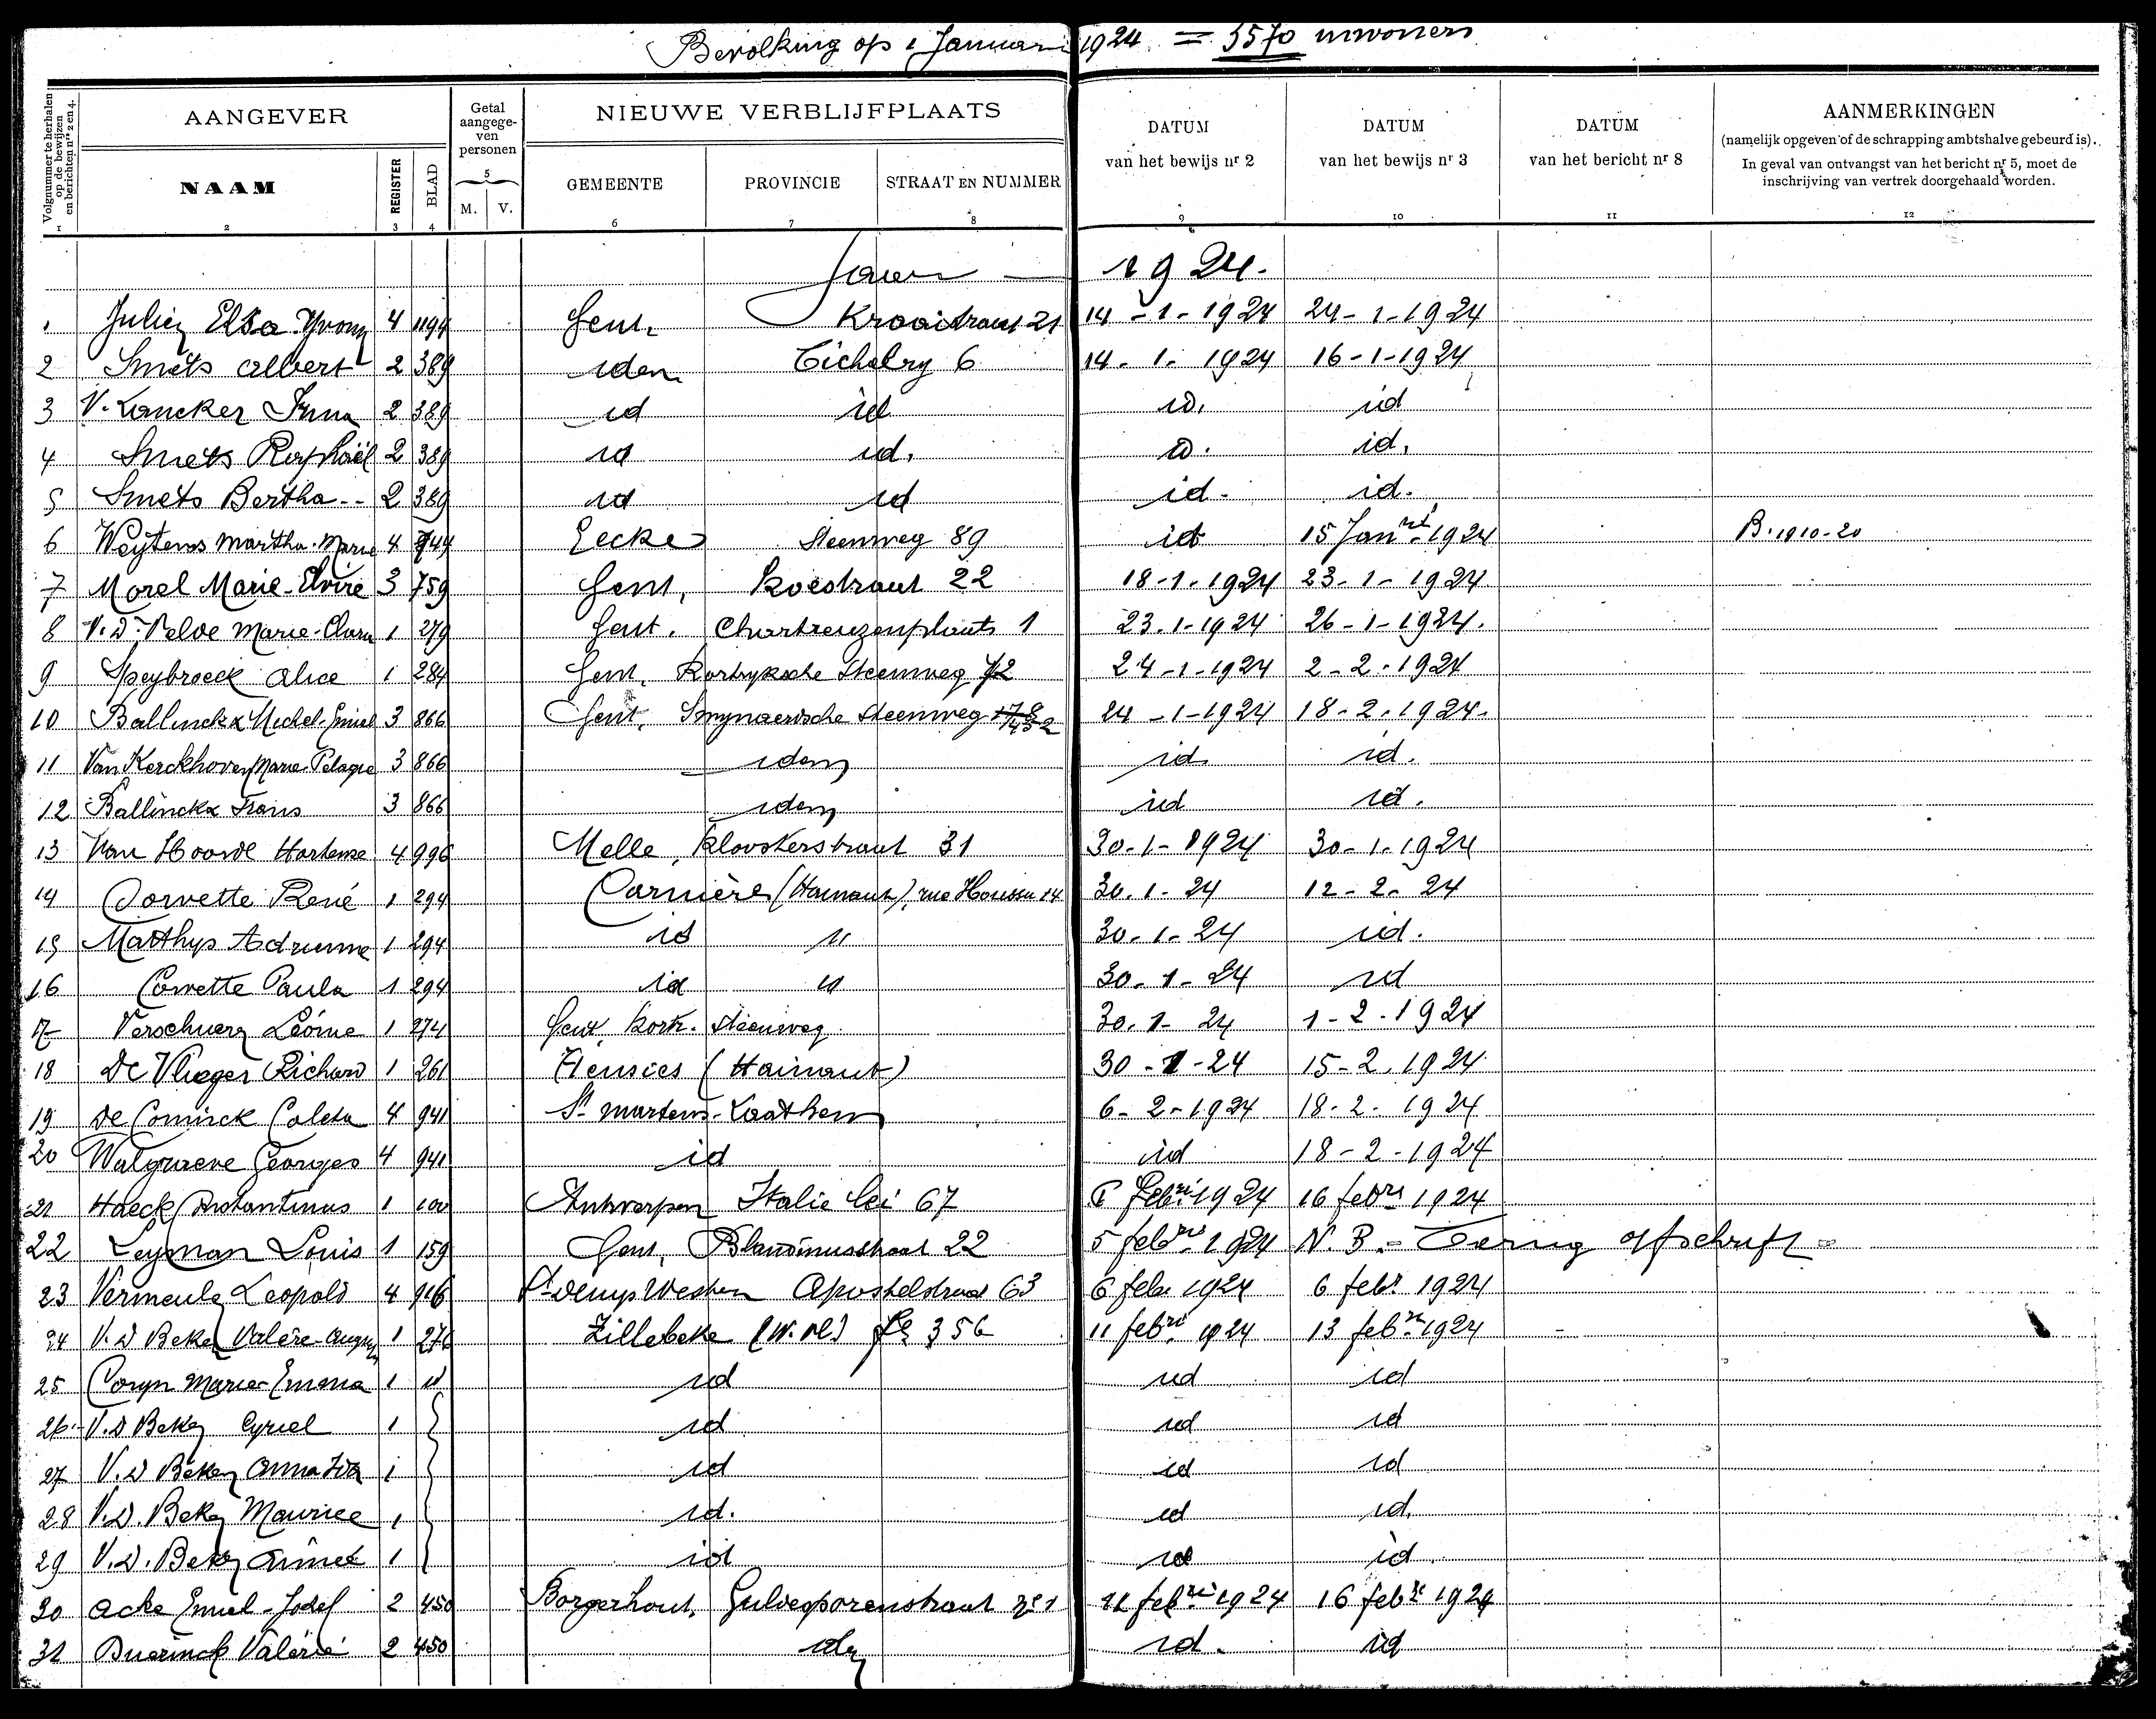 Bevolking op 1 Januari 1924 = 5570 inwoners
Volgnummer te herhalen op de bewijzen en berichten nrs 2 en 4.
AANGEVER
Getal aangegeven personen
NIEUWE VERBLIJFPLAATS
DATUM van het bewijs nr 2
DATUM van het bewijs nr 3
DATUM van het bericht nr 8
AANMERKINGEN
(namelijk opgeven of de schrapping ambtshalve gebeurd is).
In geval van ontvangst van het bericht nr 5, moet de
inschrijving van vertrek doorgehaald worden.
NAAM REGISTER BLAD M. V. GEMEENTE PROVINCIE STRAAT EN NUMMER
1 2 3 4 5 6 7 8 9 10 11 12
Jaar 1924.
1 Julien Elsa Yvonne 4 1194 Gent, Kraaistraat 21 14-1-1924 24-1-1924
2 Smets Albert 2 389 idem Tichelry 6 14-1-1924 16-1-1924
3 V. Lancker Irma 2 389 id id id. id
4 Smets Raphaël 2 389 id id. id. id.
5 Smets Bertha -- 2 389 id id id. id.
6 Weytens Martha-Marie 4 744 Eecke Steenweg 89 id 15 Janri 1924 B. 1910-20
7 Morel Marie-Elvire 3 759 Gent, Koestraat 22 18-1-1924 23-1-1924
8 V.D. Velde Marie-Clara 1 279 Gent. Chartreuzenplaats 1 23.1-1924 26-1-1924.
9 Speybroeck Alice 1 284 Gent, Kortryksche Steenweg 72 24-1-1924 2-2-1924
10 Ballinckx Michel-Emiel 3 866 Gent, Smynaersche Steenweg 24-1-1924 18-2-1924.
11 Van Kerckhoven Marie-Pelagie 3 866 idem id. id.
12 Ballinckx Frans 3 866 idem id id.
13 Van Hoorde Hortense 4 996 Melle, Kloosterstraat 31 30-1-1924 30-1-1924
14 Corvette René 1 294 Carnière (Hainaut), rue 14 30.1-24 12-2-24
15 Matthys Adrienne 1 294 id " 30-1-24 id.
16 Corvette Paula 1 294 id " 30-1-24 id
17 Verschuere Léonie 1 274 Gent, Kortr. Steenweg 30.1-24 1-2-1924
18 De Vlieger Richard 1 261 Hensies (Hainaut) 30-1-24 15-2-1924
19 De Coninck Coleta 4 941 St Martens-Laathem 6-2-1924 18-2-1924
20 Walgraeve Georges 4 941 id id 18-2-1924
21 Haeck Constantinus 1 100 Antwerpen Italie lei 67 6 Febri 1924 16 febri 1924
22 Leyman Louis 1 159 Gent, Blandinusstraat 22 5 febri 1924 N.B.- Terug afschrift -
23 Vermeulen Leopold 4 916 St Denys Westrem Apostelstraat 63 6 febr 1924 6 febr 1924
24 V.D Beken Valère-August 1 276 Zillebeke (W. Vl.) 356 11 febri 1924 13 febri 1924
25 Coryn Marie-Emma 1 " id id id
26 V.D Beken Cyriel 1 id id id
27 V.D Beken Anna Zita 1 id id id
28 V.D. Beken Maurice 1 id. id id.
29 V.D. Beken Aimee 1 id id id.
30 Acke Emiel-Josef 2 450 Borgerhout, Guldesporenstraat no 1 11 febri 1924 16 febri 1924
31 Buerinck Valérie 2 450 idem id. id